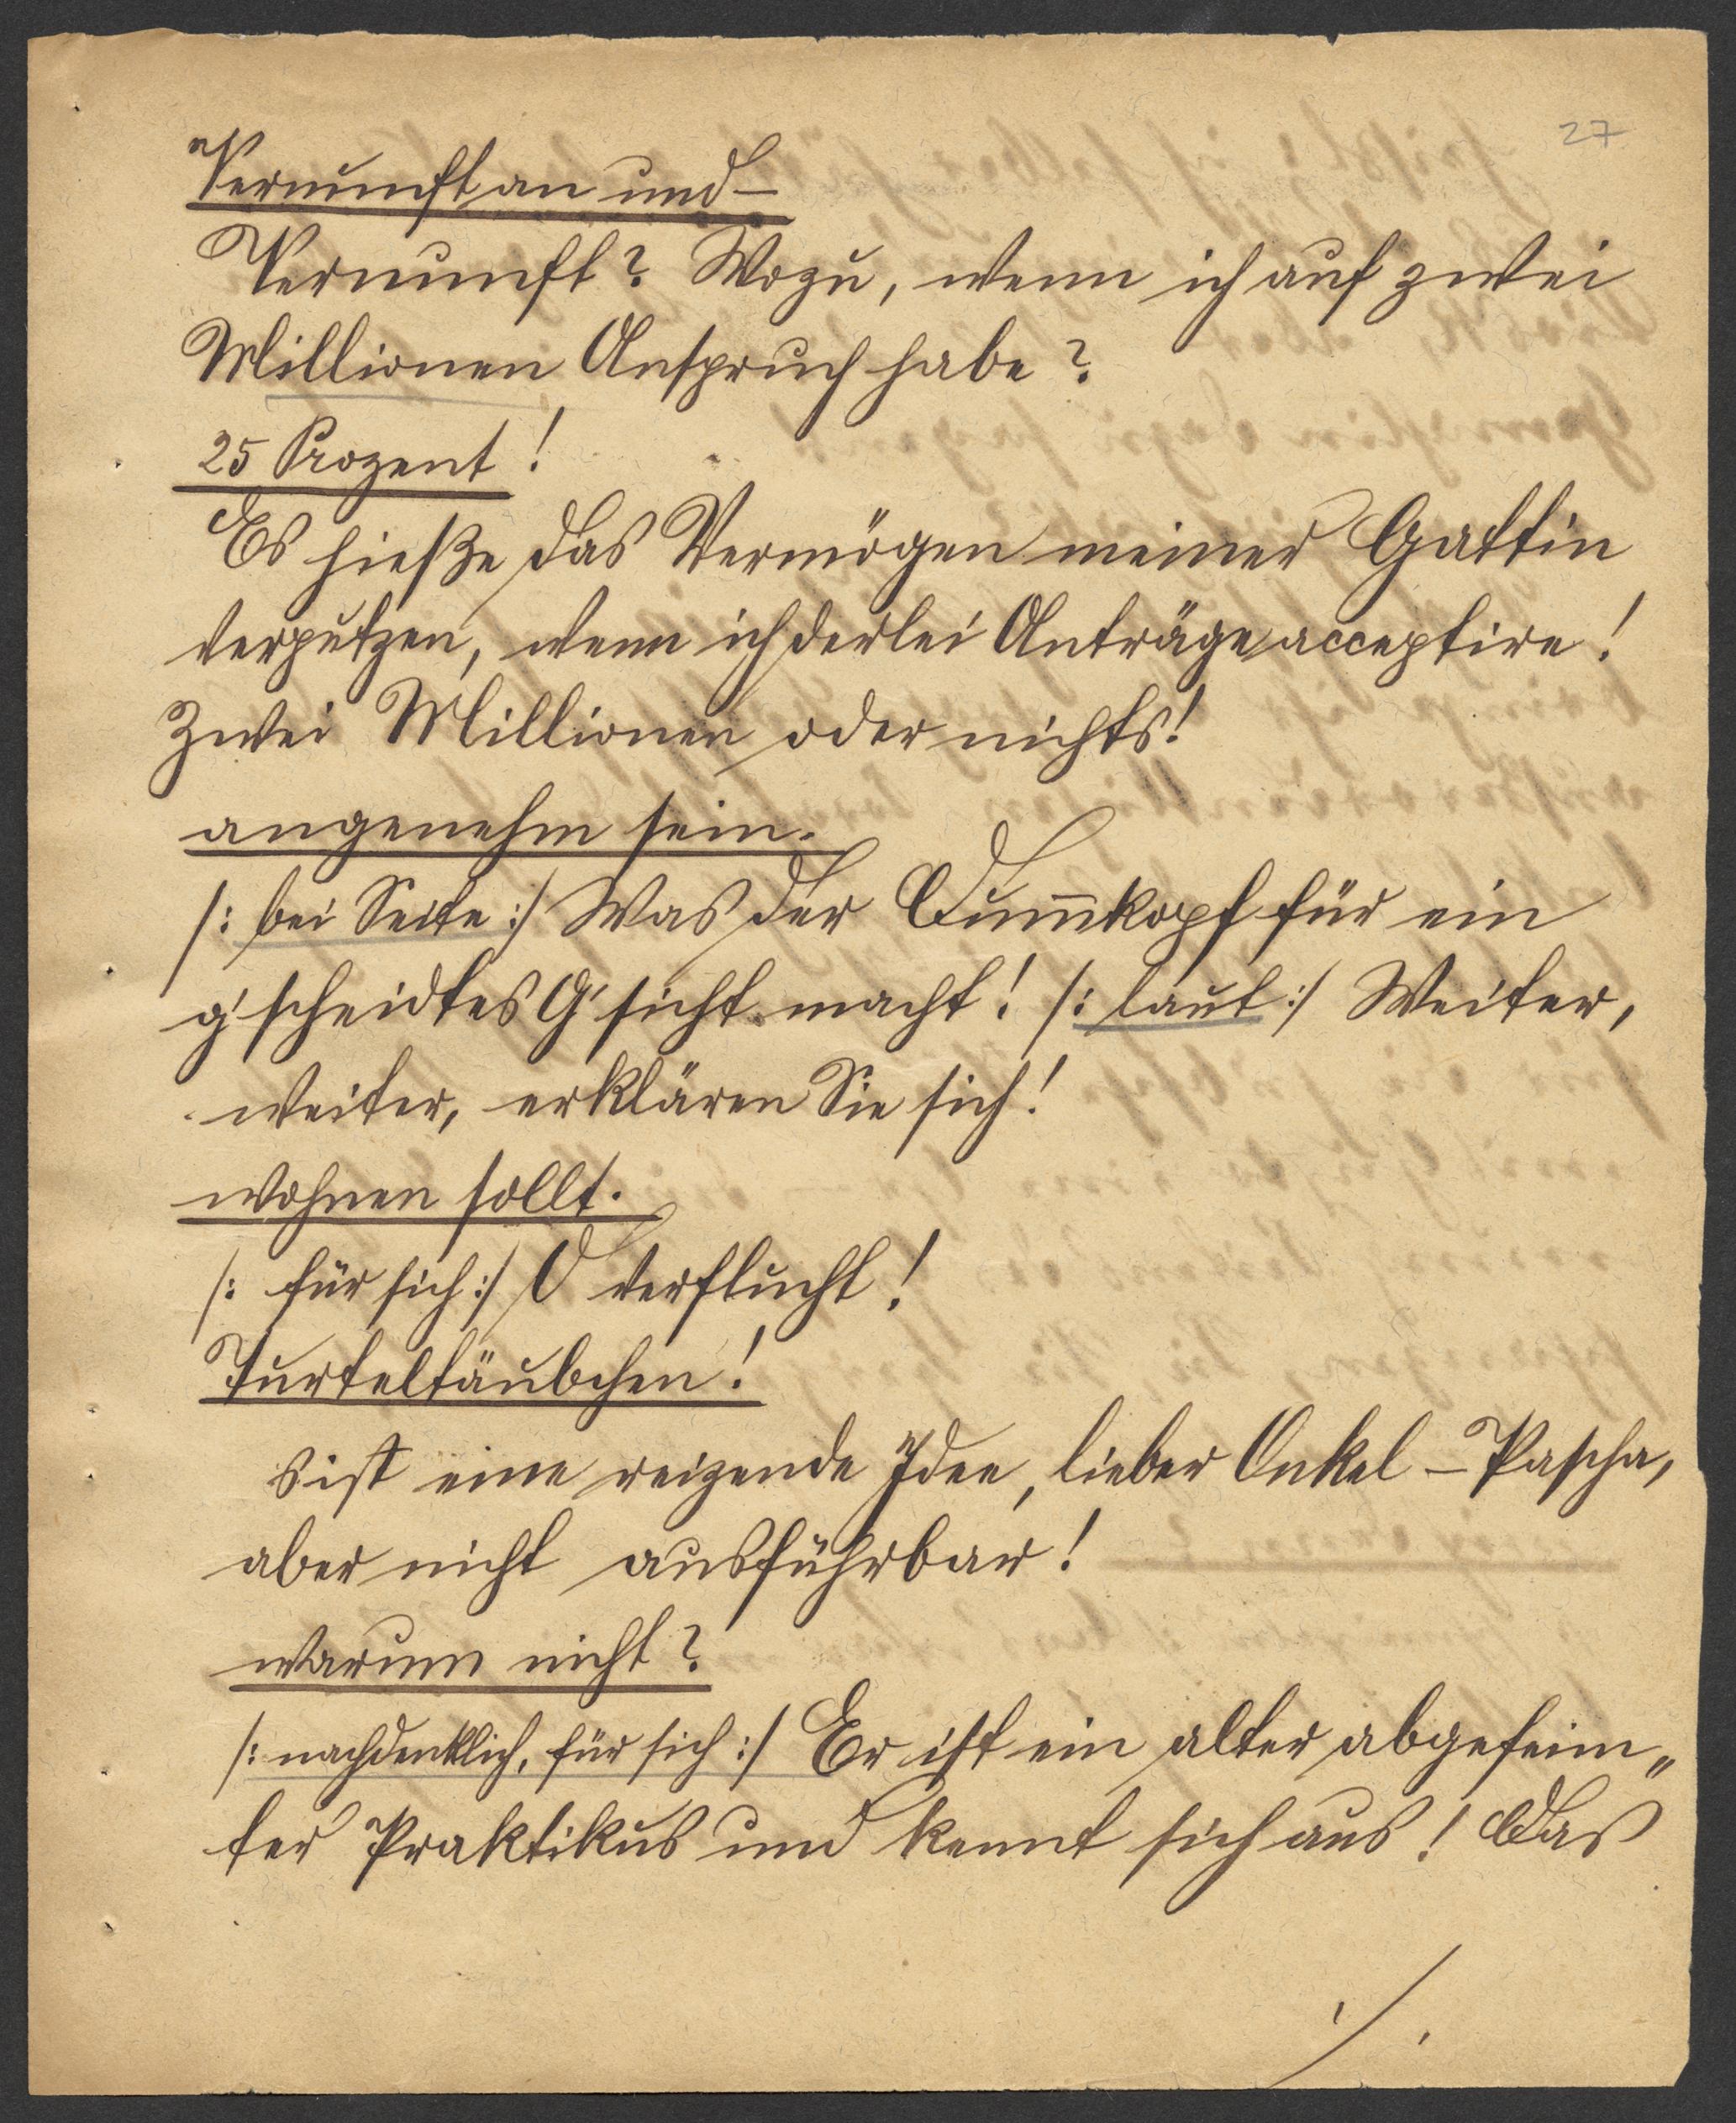 27
Vernunft an und –
Vernunft? Wozu, wenn ich auf zwei
Millionen Anspruch habe?
25 Prozent!
Es hieße das Vermögen meiner Gattin
verputzen, wenn ich derlei Anträge acceptire!
Zwei Millionen oder nichts!
angenehm sein.
/: bei Seite :/ Was der Dum̅kopf für ein
g'scheidtes G'sicht macht! /: laut :/ Weiter,
weiter, erklären Sie sich!
wohnen sollt.
/: für sich :/ O verflucht!
Turteltäubchen!
s ist eine reizende Idee, lieber Onkel – Pascha,
aber nicht ausführbar!
warum nicht?
/: nachdenklich, für sich :/ Er ist ein alter abgefeim„
ter Praktikus und kennt sich aus! Das
./.